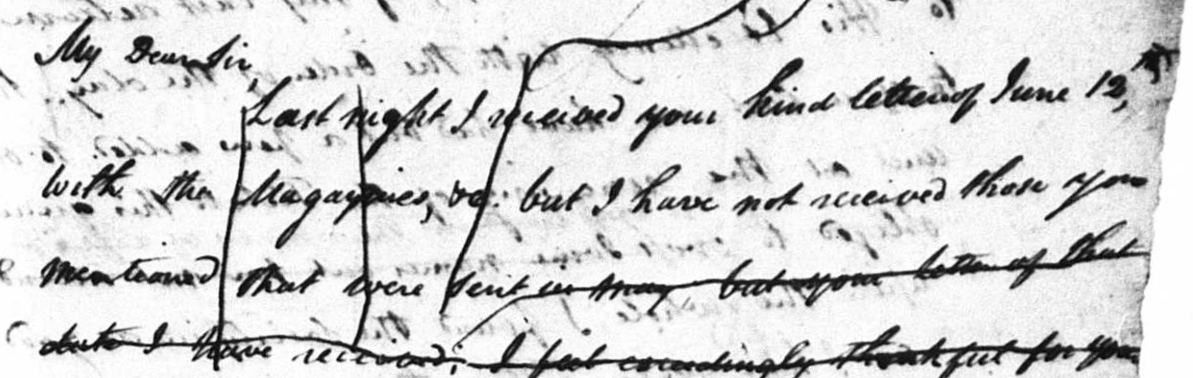 My Dear Sir,
Last night I received your kind letter of June 12th,
with the Magazines, &c. but I have not received those you
mentioned that were sent in May, but your letter of that
date I have received; I feel exceedingly thankful for your